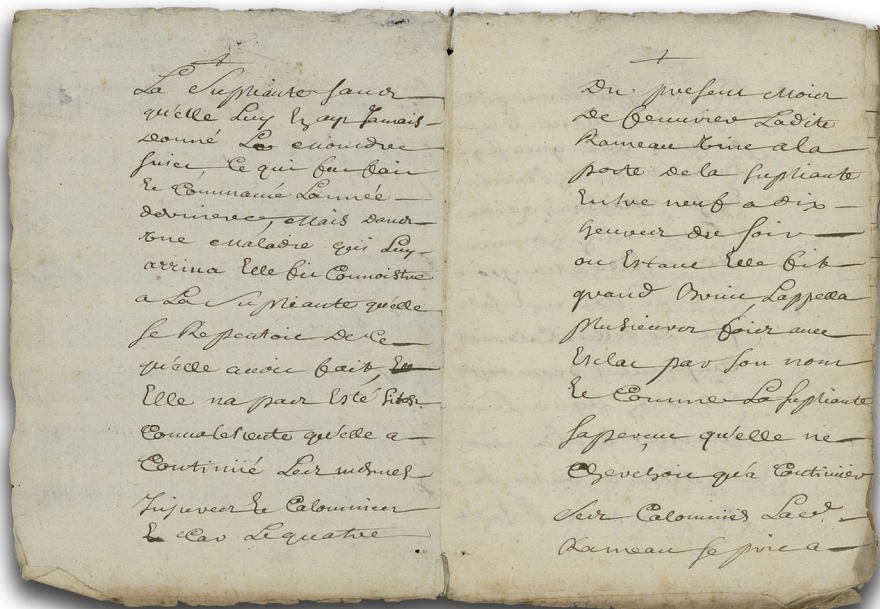 La Supliante sans
qu'elle Luy En aye Jamais
donné La moindre
suiet Ce qui fut fait
Et Commancé Lannée
derniere, Mais dans
Une Maladie qui Luy
arriva Elle fit Connoistre
a La Supliante qu'elle
se Repentoit De Ce
qu'elle avoit fait,
Elle na pas Esté sitost
Convalescente qu'elle a
Continüé Les mesmes
Injures Et Calomnies
Car Le quatre
Du present Mois
De fevrier Ladite
Rameau Vint a la
porte de la supliante
Entre neuf a dix
heures du soir
ou Estant Elle fit
grand bruit Lappella
plusieurs fois avec
Esclat par son nom
Et Comme La supliante
saperceut qu'elle ne
Cherchoit qu'a Continüer
ses Calomnies Lad.
Rameau se prit a